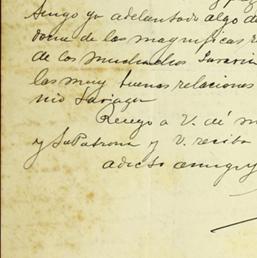 tengo ya adelantado algo de
dome de las magnificas
de los muchachos Sararin
las muy buenas relaciones
nio Sariaga
Ruego a V. dé
y su Patrona y V. reciba
adicto amigo y